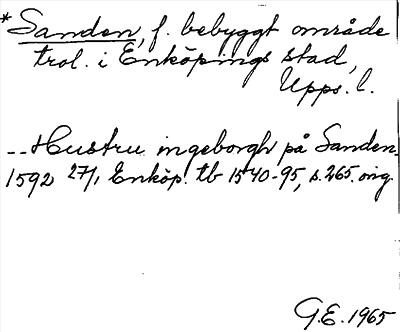 *Sanden, f. bebyggt område
trol. i Enköpings stad,
Upps. l.
-- Hustru ingeborgh på Sanden
1592 27/1 Enköp. tb 1540-95, s. 265. orig.
G.E. 1965